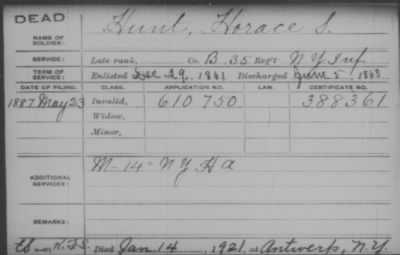 DEAD
NAME OF SOLDIER: Hunt, Horace S.
SERVICE: Late rank, Co. B. 35 Reg't N.Y. Inf.
TERM OF SERVICE: Enlisted Dec. 29, 1861 Discharged June 5, 1863
DATE OF FILING. CLASS. APPLICATION NO. LAW. CERTIFICATE NO.
1887 May 23 Invalid, 610 750 388361
Widow,
Minor,
ADDITIONAL SERVICES: M-14-NY HA
REMARKS:
Died Jan. 14, 1921, at Antwerp, N.Y.